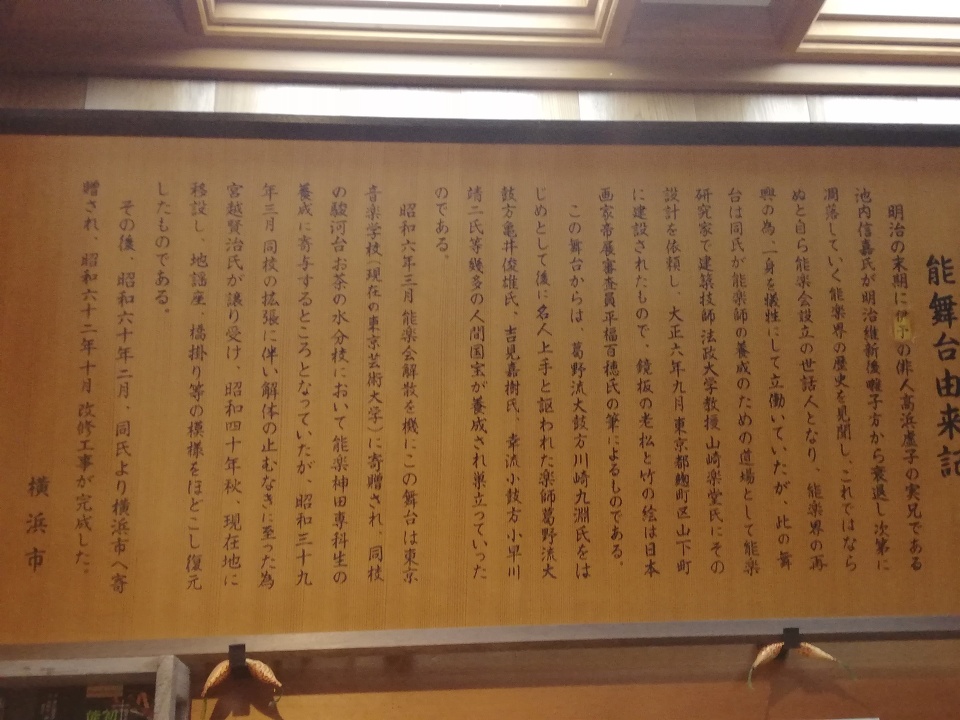 能舞台由来記
明治の末期に伊予の俳人高浜虚子の実兄である
池内信嘉氏が明治維新後囃子方から衰退し次第に
凋落していく能楽界の歴史を見聞し、これではなら
ぬと自ら能楽会設立の世話人となり、能楽界の再
興の為、一身を犠牲にして立働いていたが、此の舞
台は同氏が能楽師の養成のための道場として能楽
研究家で建築技師法政大学教授山崎楽堂氏にその
設計を依頼し、大正六年九月東京都麹町区山下町
に建設されたもので、鏡板の老松と竹の絵は日本
画家帝展審査員平福百穂氏の筆によるものである。
この舞台からは、葛野流大鼓方川崎九淵氏をは
じめとして後に名人上手と謳われた楽師葛野流大
鼓方亀井俊雄氏、吉見嘉樹氏、幸流小鼓方小早川
靖二氏等幾多の人間国宝が養成され巣立っていった
のである。
昭和六年三月能楽会解散を機にこの舞台は東京
音楽学校（現在の東京芸術大学）に寄贈され、同校
の駿河台お茶の水分校において能楽神田専科生の
養成に寄与するところとなっていたが、昭和三十九
年三月同校の拡張に伴い解体の止むなきに至った為
宮越賢治氏が譲り受け、昭和四十年秋、現在地に
移設し、地謡座、橋掛り等の模様をほどこし復元
したものである。
その後、昭和六十年二月、同氏より横浜市へ寄
贈され、昭和六十二年十月改修工事が完成した。
横浜市